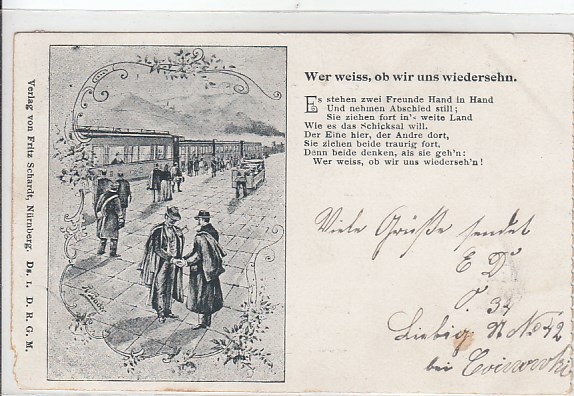 Wer weiss, ob wir uns wiedersehn.
Es stehen zwei Freunde Hand in Hand
Und nehmen Abschied still;
Sie ziehen fort in's weite Land
Wie es das Schicksal will.
Der Eine hier, der Andre dort,
Sie ziehen beide traurig fort,
Denn beide denken, als sie geh'n:
Wer weiss, ob wir uns wiederseh'n!
Viele Grüße sendet
E D
34
Liebig No 42
bei
Verlag von Fritz Schardt, Nürnberg. Ds. 1. D. R. G. M.